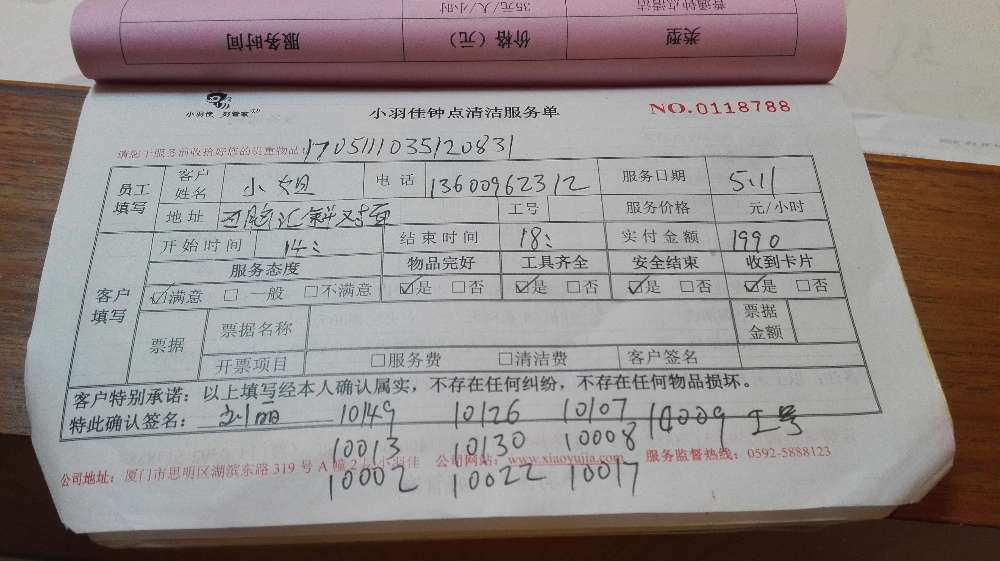 普通钟点清洁 35元/人/小时
类型 价格（元） 服务时间
小羽佳 好管家
小羽佳钟点清洁服务单
NO.0118788
请您于服务前收拾好您的贵重物品！
1705111035120831
员工填写 客户姓名 小姐 电话 13600962312 服务日期 5.11
地址 工号 服务价格 元/小时
开始时间 14: 结束时间 18: 实付金额 1990
服务态度 物品完好 工具齐全 安全结束 收到卡片
客户填写 ☑满意 □一般 □不满意 ☑是 □否 ☑是 □否 ☑是 □否 ☑是 □否
票据 票据名称 票据金额
开票项目 □服务费 □清洁费 客户签名
客户特别承诺：以上填写经本人确认属实，不存在任何纠纷，不存在任何物品损坏。
特此确认签名： 刘丽 10149 10126 10107 14009 工号
10013 10130 10008
公司地址：厦门市思明区湖滨东路319号A幢2 小羽佳 公司网站：www.xiaoyujia.com 服务监督热线：0592-5888123
10002 10022 10017